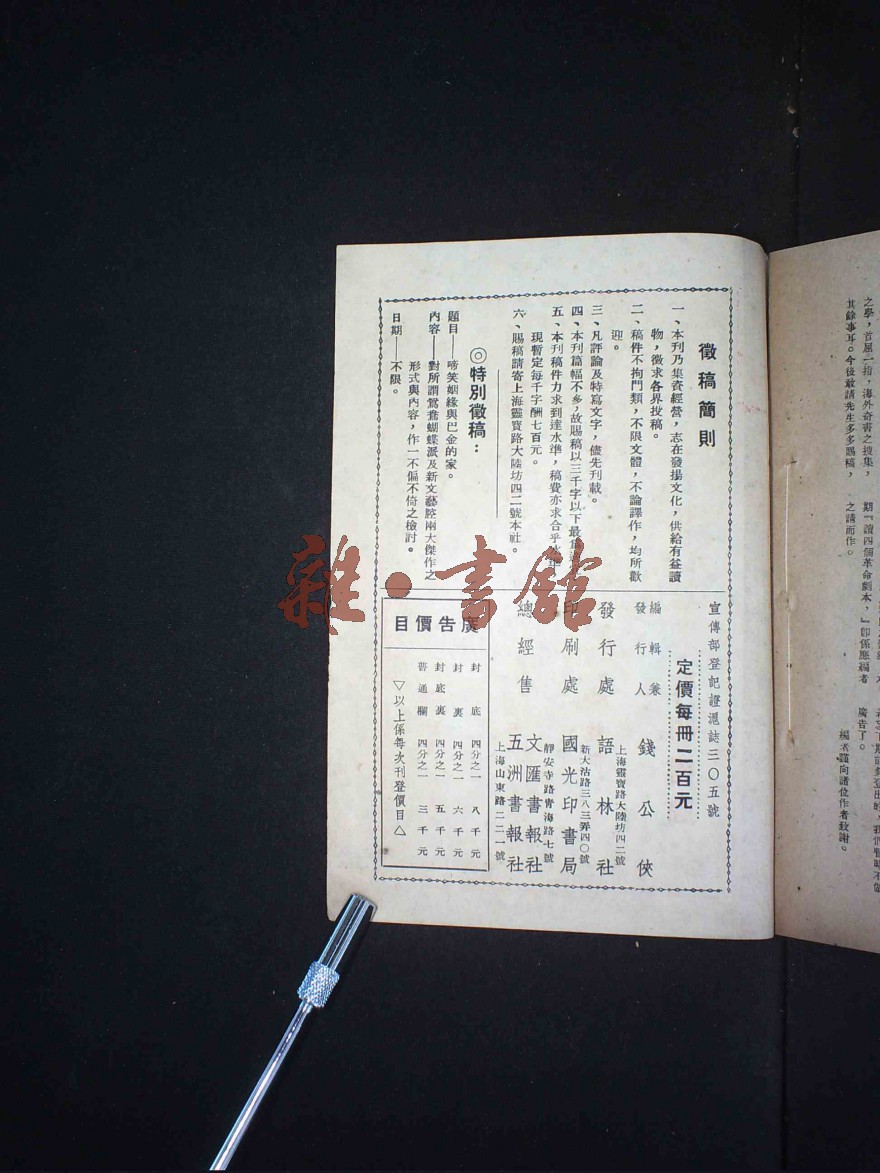 徵稿簡則
一、本刊乃集資經營，志在發揚文化，供給有益讀
物，徵求各界投稿。
二、稿件不拘門類，不限文體，不論譯作，均所歡
迎。
三、凡評論及特寫文字，儘先刊載。
四、本刊篇幅不多，故賜稿以三千字以下最
五、本刊稿件力求到達水準，稿費亦求合乎
現暫定每千字酬七百元。
六、賜稿請寄上海靈寶路大陸坊四二號本社。
◎特別徵稿：
題目——啼笑姻緣與巴金的家。
內容——對所謂鴛鴦蝴蝶派及新文藝腔兩大傑作之
形式與內容，作一不偏不倚之檢討。
日期——不限。
宣傳部登記證滬誌三〇五號
定價每冊二百元
編輯兼
發行人 錢公俠
上海靈寶路大陸坊四二號
發行處 語林社
新大沽路三八三弄四〇號
印刷處 國光印書局
靜安寺路青海路七號
文匯書報社
總經售
五洲書報社
上海山東路二二一號
廣告價目
封底 四分之一 八千元
封裏 四分之一 六千元
封底裏 四分之一 五千元
普通欄 四分之一 三千元
▽以上係每次刊登價目△
雜·書館
之學，首屈一指，海外奇書之搜集，
其餘事耳。今後敢請先生多多賜稿，
期『讀四個革命劇本，』卽係應編者
之請而作。
廣告了。
編者謹向諸位作者致謝。